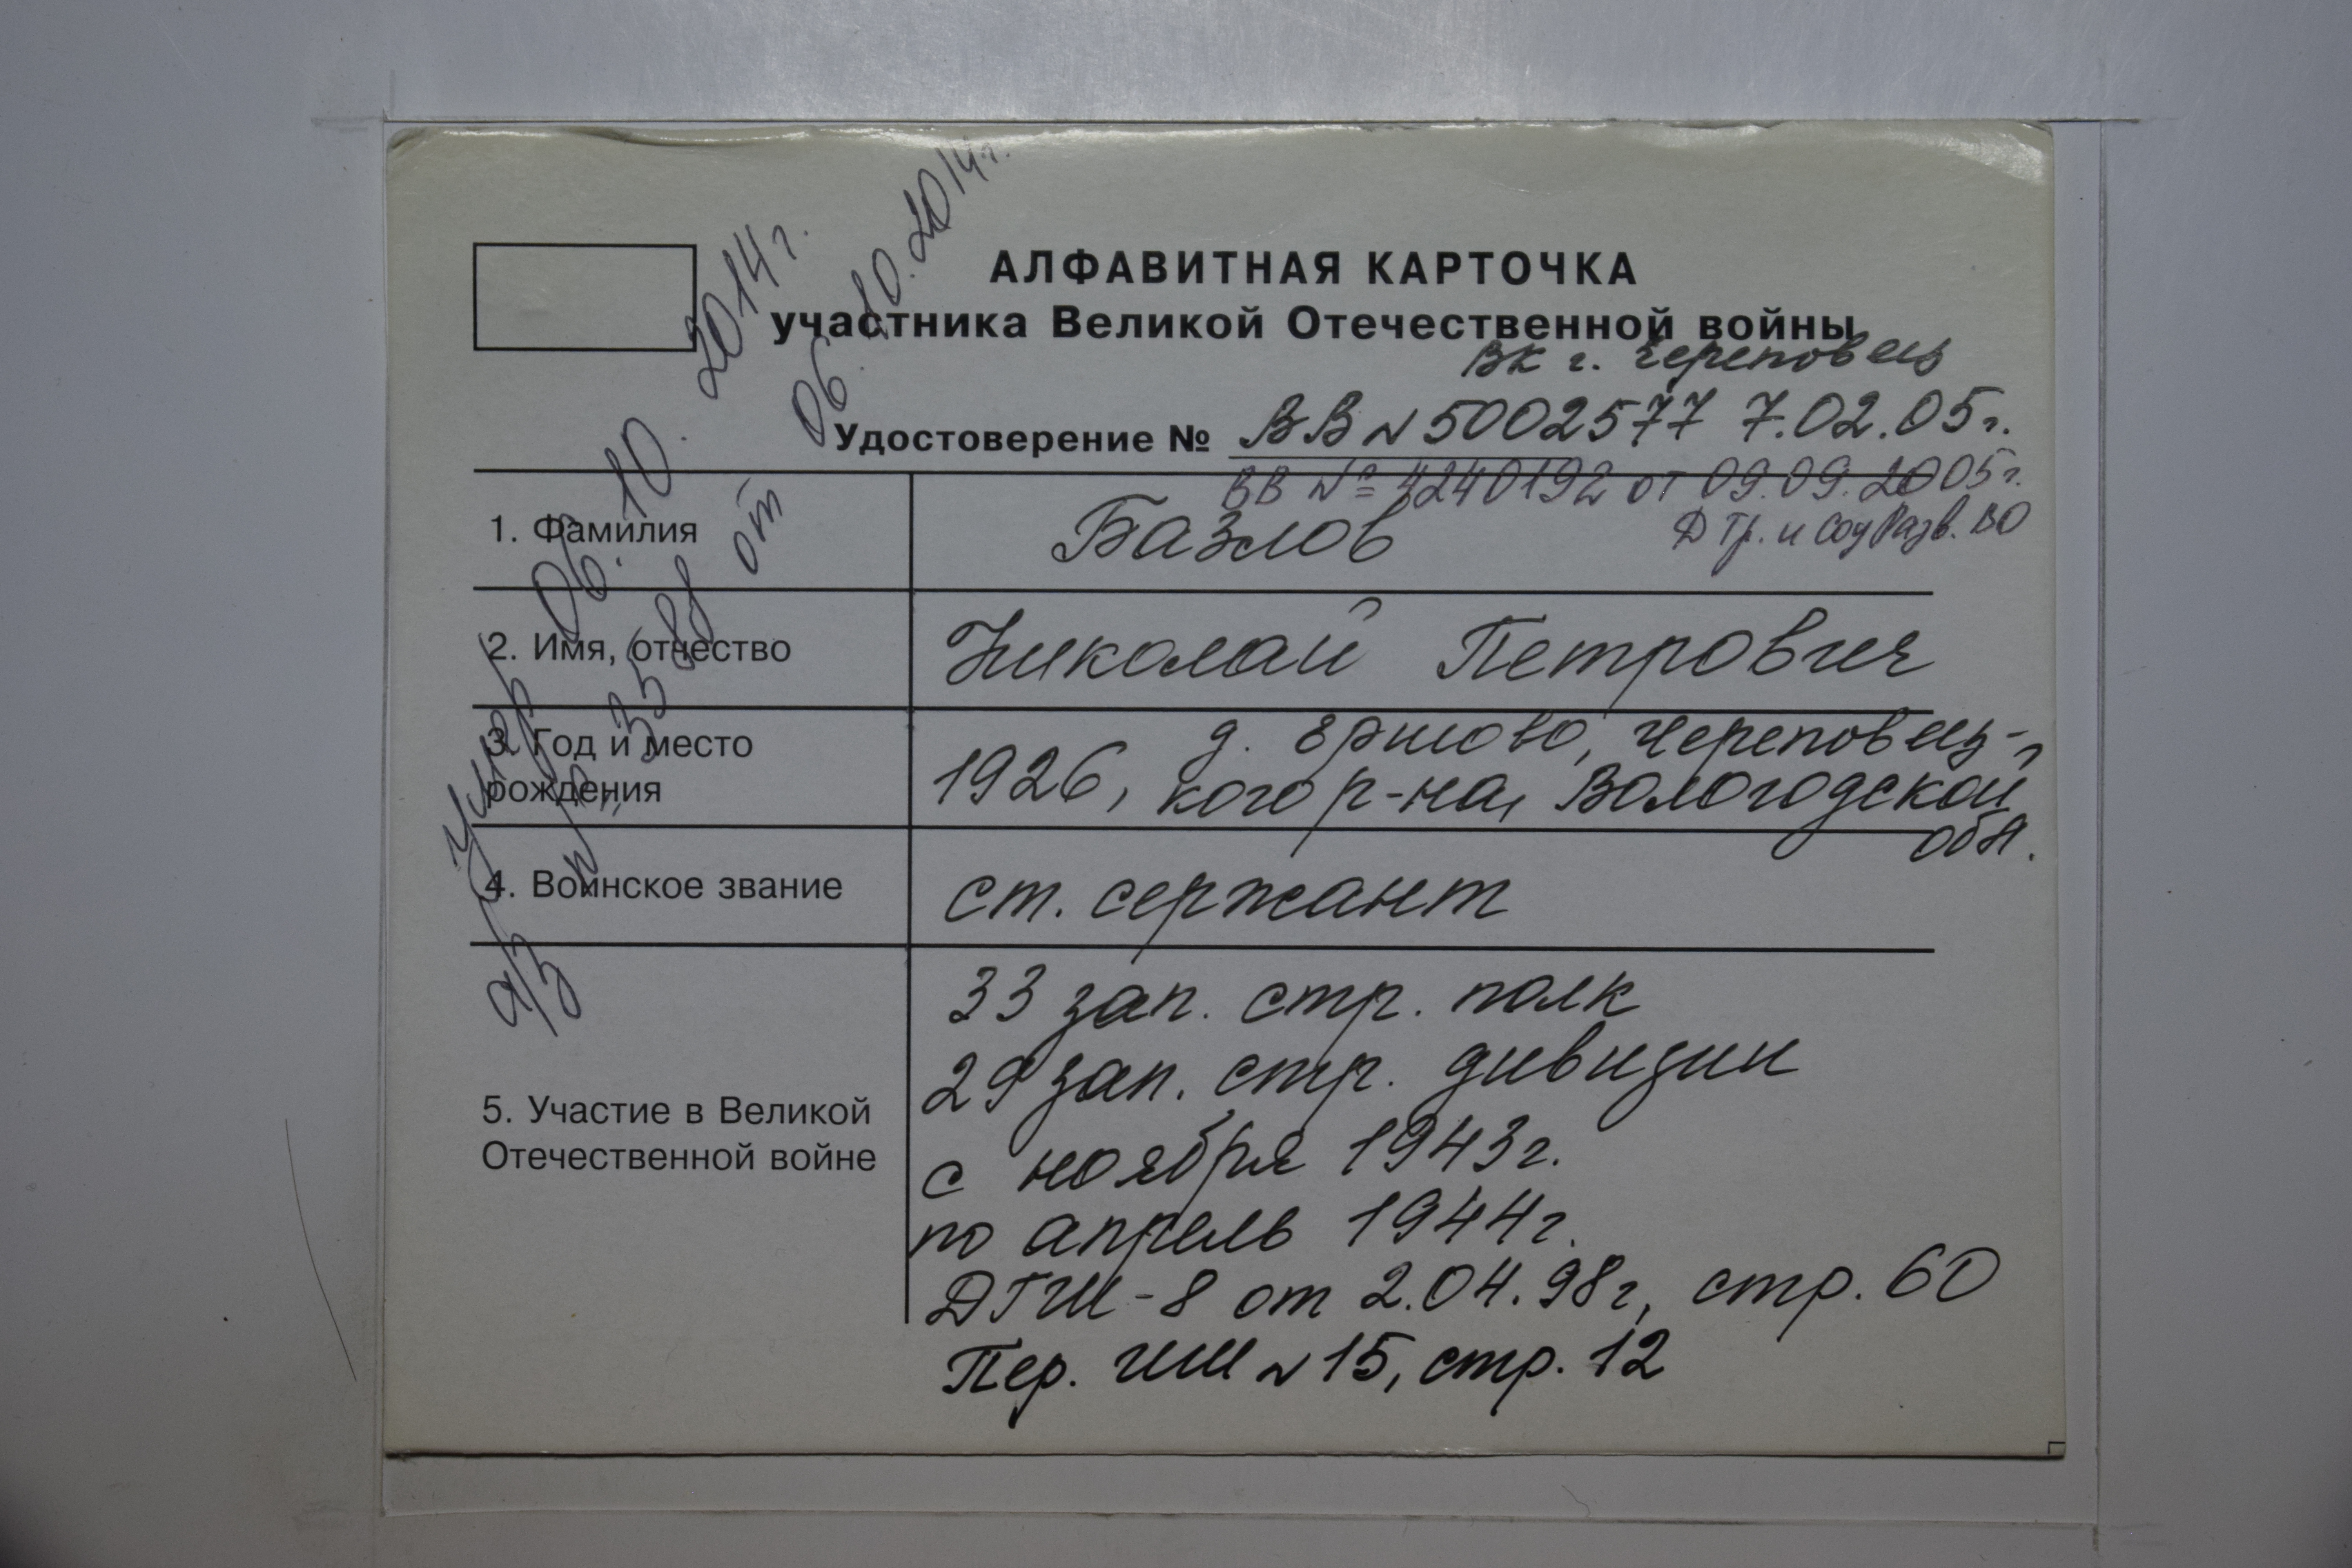 АЛФАВИТНАЯ КАРТОЧКА
участника Великой Отечественной войны
ВК г. Череповец
Удостоверение № ВВ N 5002577 7.02.05г.
ВВ № 4240192 от 09.09.2005г.
Д Тр. и Соц Разв. ВО
1. Фамилия Базлов
2. Имя, отчество Николай Петрович
3. Год и место рождения 1926, д. Ершово, Череповец-
кого р-на, Вологодской
обл.
4. Воинское звание ст. сержант
5. Участие в Великой
Отечественной войне
33 зап. стр. полк
29 зап. стр. дивизии
с ноября 1943г.
по апрель 1944г.
ДГШ-8 от 2.04.98г, стр. 60
Пер. ГШ N 15, стр. 12
Умер 06.10.2014г.
а/з № 3588 от 06.10.2014г.